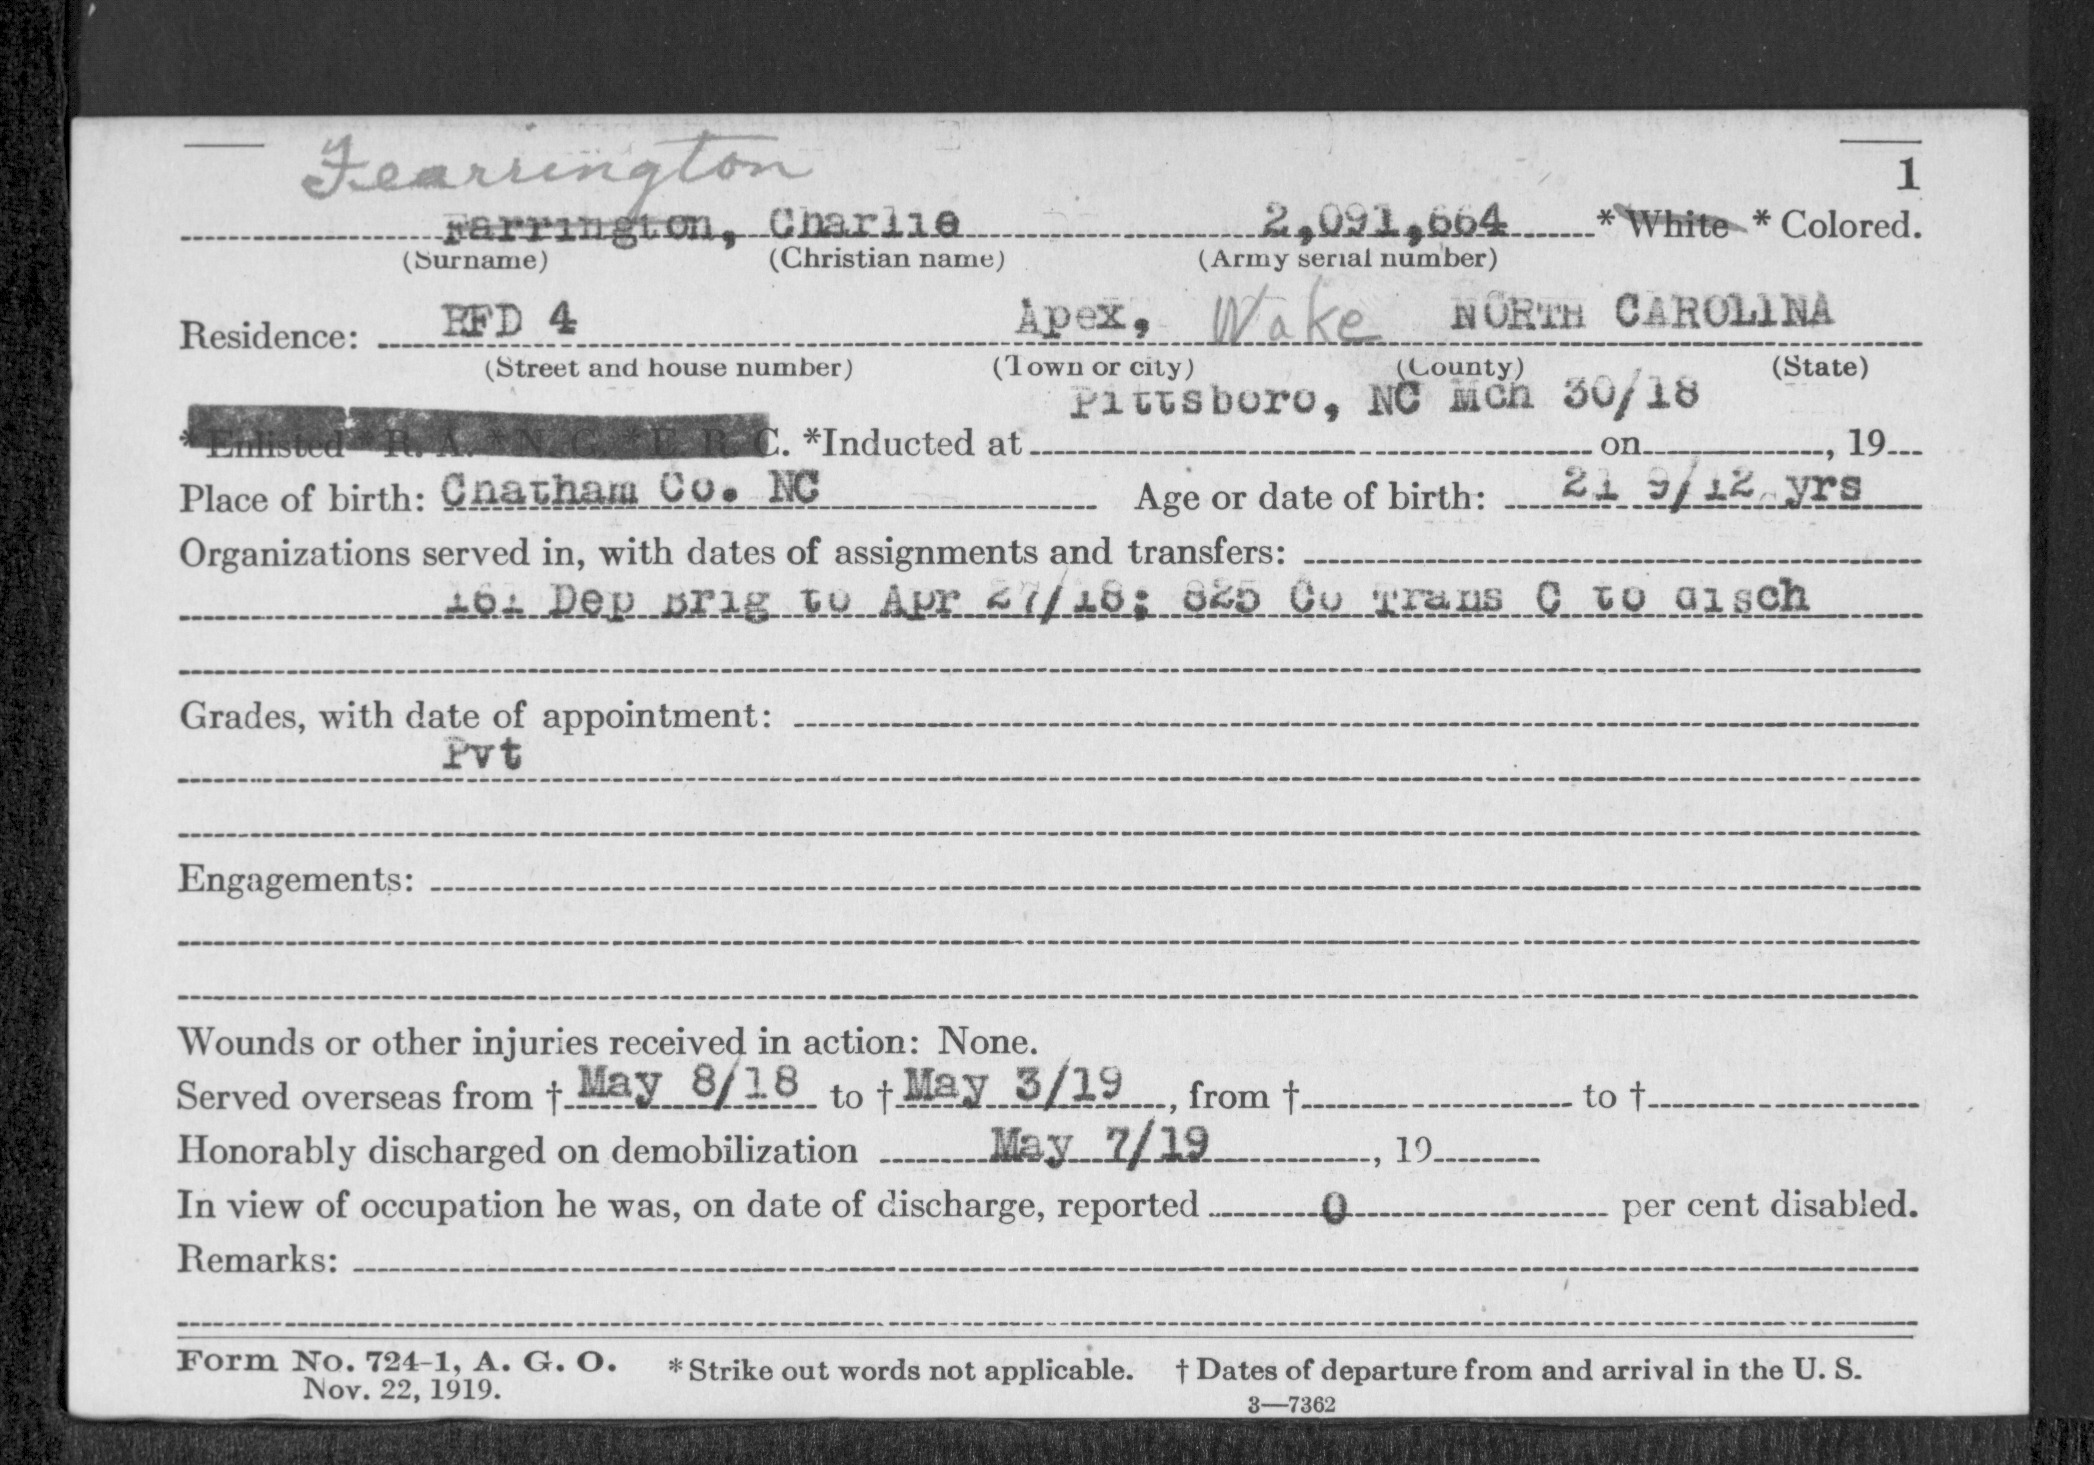 Fearrington
1
Farrington, Charlie 2,091,664 * White * Colored.
(Surname) (Christian name) (Army serial number)
Residence: RFD 4 Apex, Wake NORTH CAROLINA
(Street and house number) (Town or city) (County) (State)
Pittsboro, NC Mch 30/18
* Enlisted * R. A. * N. G. * E. R. C. *Inducted at on , 19
Place of birth: Chatham Co. NC Age or date of birth: 21 9/12 yrs
Organizations served in, with dates of assignments and transfers:
161 Dep Brig to Apr 27/18; 825 Co Trans C to disch
Grades, with date of appointment:
Pvt
Engagements:
Wounds or other injuries received in action: None.
Served overseas from † May 8/18 to † May 3/19 , from † to †
Honorably discharged on demobilization May 7/19 , 19
In view of occupation he was, on date of discharge, reported 0 per cent disabled.
Remarks:
Form No. 724-1, A. G. O. * Strike out words not applicable. † Dates of departure from and arrival in the U. S.
Nov. 22, 1919.
3—7362